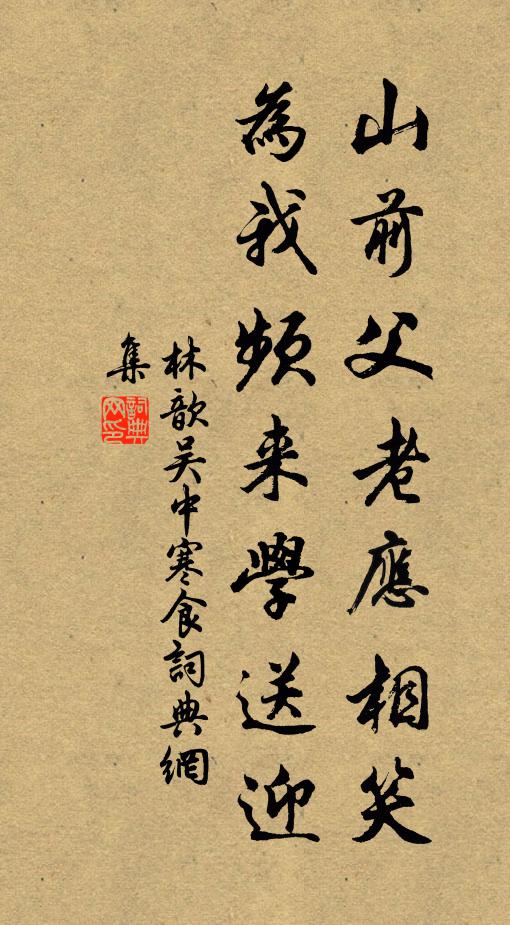 山前父老應相笑
為我頻来學送迎
林歆吴中寒食詞典網
集
詞典
网印